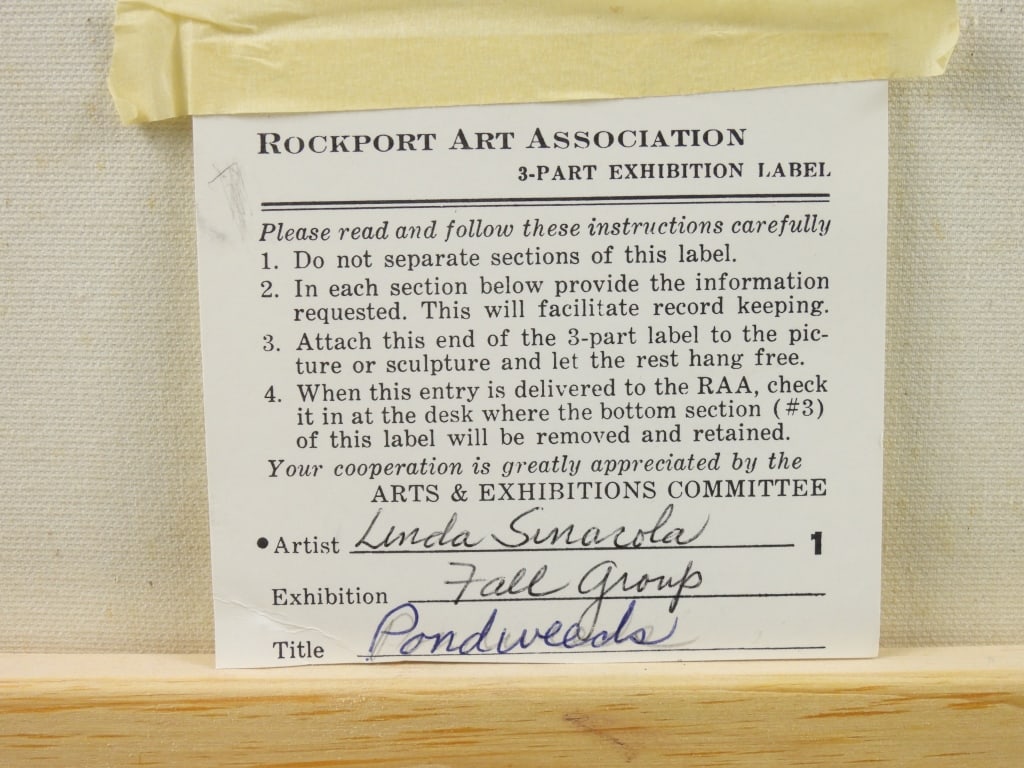 ROCKPORT ART ASSOCIATION
3-PART EXHIBITION LABEL
Please read and follow these instructions carefully
1. Do not separate sections of this label.
2. In each section below provide the information
requested. This will facilitate record keeping.
3. Attach this end of the 3-part label to the pic-
ture or sculpture and let the rest hang free.
4. When this entry is delivered to the RAA, check
it in at the desk where the bottom section (#3)
of this label will be removed and retained.
Your cooperation is greatly appreciated by the
ARTS & EXHIBITIONS COMMITTEE
• Artist Linda Sinacola 1
Exhibition Fall Group
Title Pondweeds